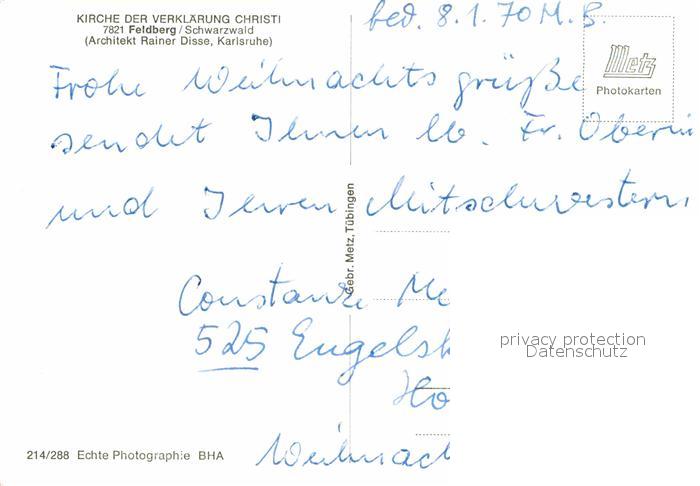 KIRCHE DER VERKLÄRUNG CHRISTI
7821 Feldberg / Schwarzwald
(Architekt Rainer Disse, Karlsruhe)
bed. 8.1.70 M.B.
Metz
Photokarten
Frohe Weihnachtsgrüße
sendet Ihnen lb. Fr. Oberin
und Ihren Mitschwestern,
Gebr. Metz, Tübingen
Constanze Me
525 Engelsk
Ho
privacy protection
Datenschutz
214/288 Echte Photographie BHA
Weihnac